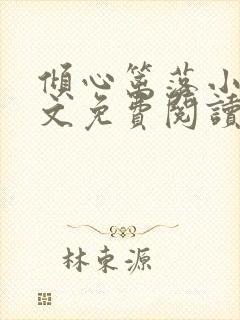 傾心篱落小
文免費閱讀
林東源